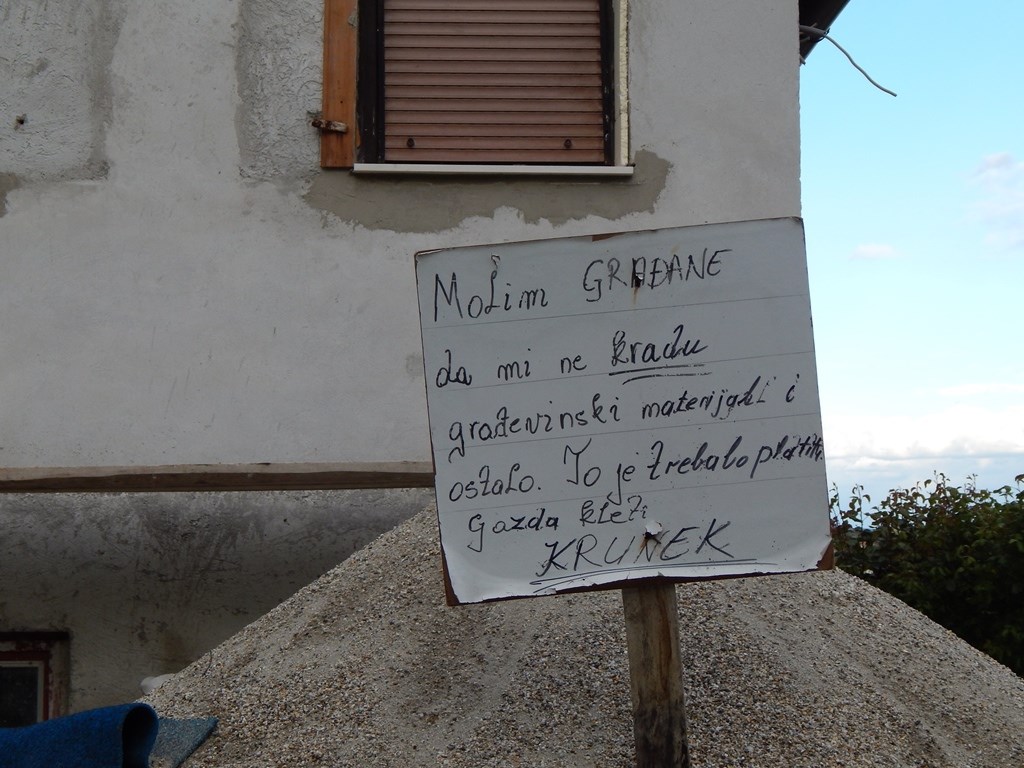 Molim GRAĐANE
da mi ne kradu
građevinski materijal i
ostalo. To je trebalo platiti.
Gazda kleti
KRUNEK